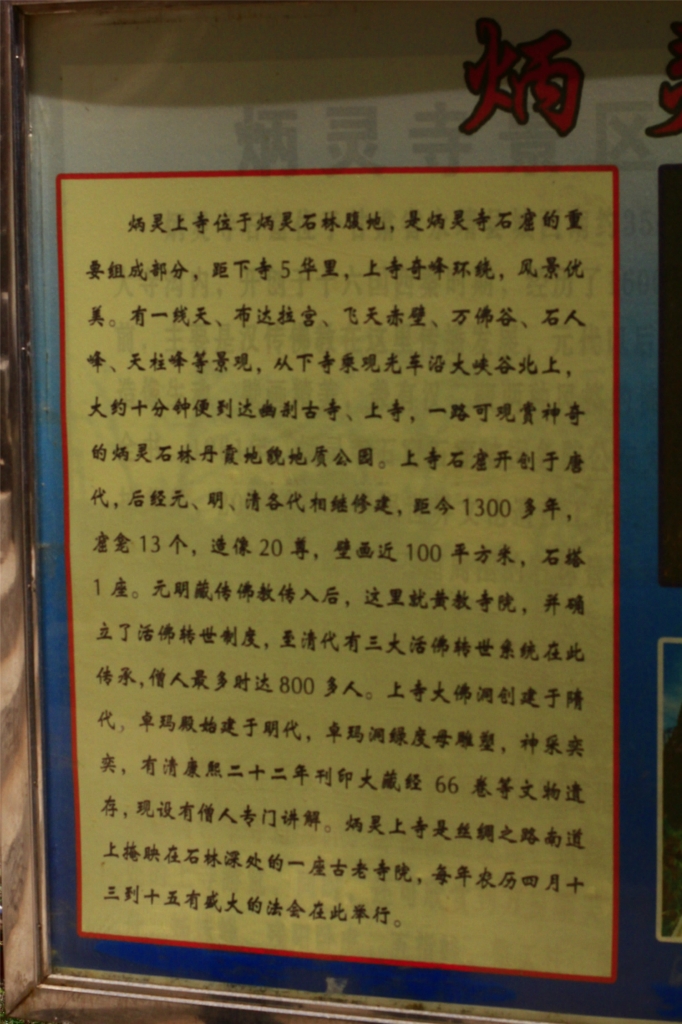 炳灵
炳灵寺景区
炳灵上寺位于炳灵石林腹地，是炳灵寺石窟的重
要组成部分，距下寺5华里，上寺奇峰环绕，风景优
美。有一线天、布达拉宫、飞天赤壁、万佛谷、石人
峰、天柱峰等景观，从下寺乘观光车沿大峡谷北上，
大约十分钟便到达幽别古寺、上寺，一路可观赏神奇
的炳灵石林丹霞地貌地质公园。上寺石窟开创于唐
代，后经元、明、清各代相继修建，距今1300多年，
窟龛13个，造像20尊，壁画近100平方米，石塔
1座。元明藏传佛教传入后，这里就黄教寺院，并确
立了活佛转世制度，至清代有三大活佛转世系统在此
传承，僧人最多时达800多人。上寺大佛洞创建于隋
代，卓玛殿始建于明代，卓玛洞绿度母雕塑，神采奕
奕，有清康熙二十二年刊印大藏经66卷等文物遗
存，现设有僧人专门讲解。炳灵上寺是丝绸之路南道
上掩映在石林深处的一座古老寺院，每年农历四月十
三到十五有盛大的法会在此举行。